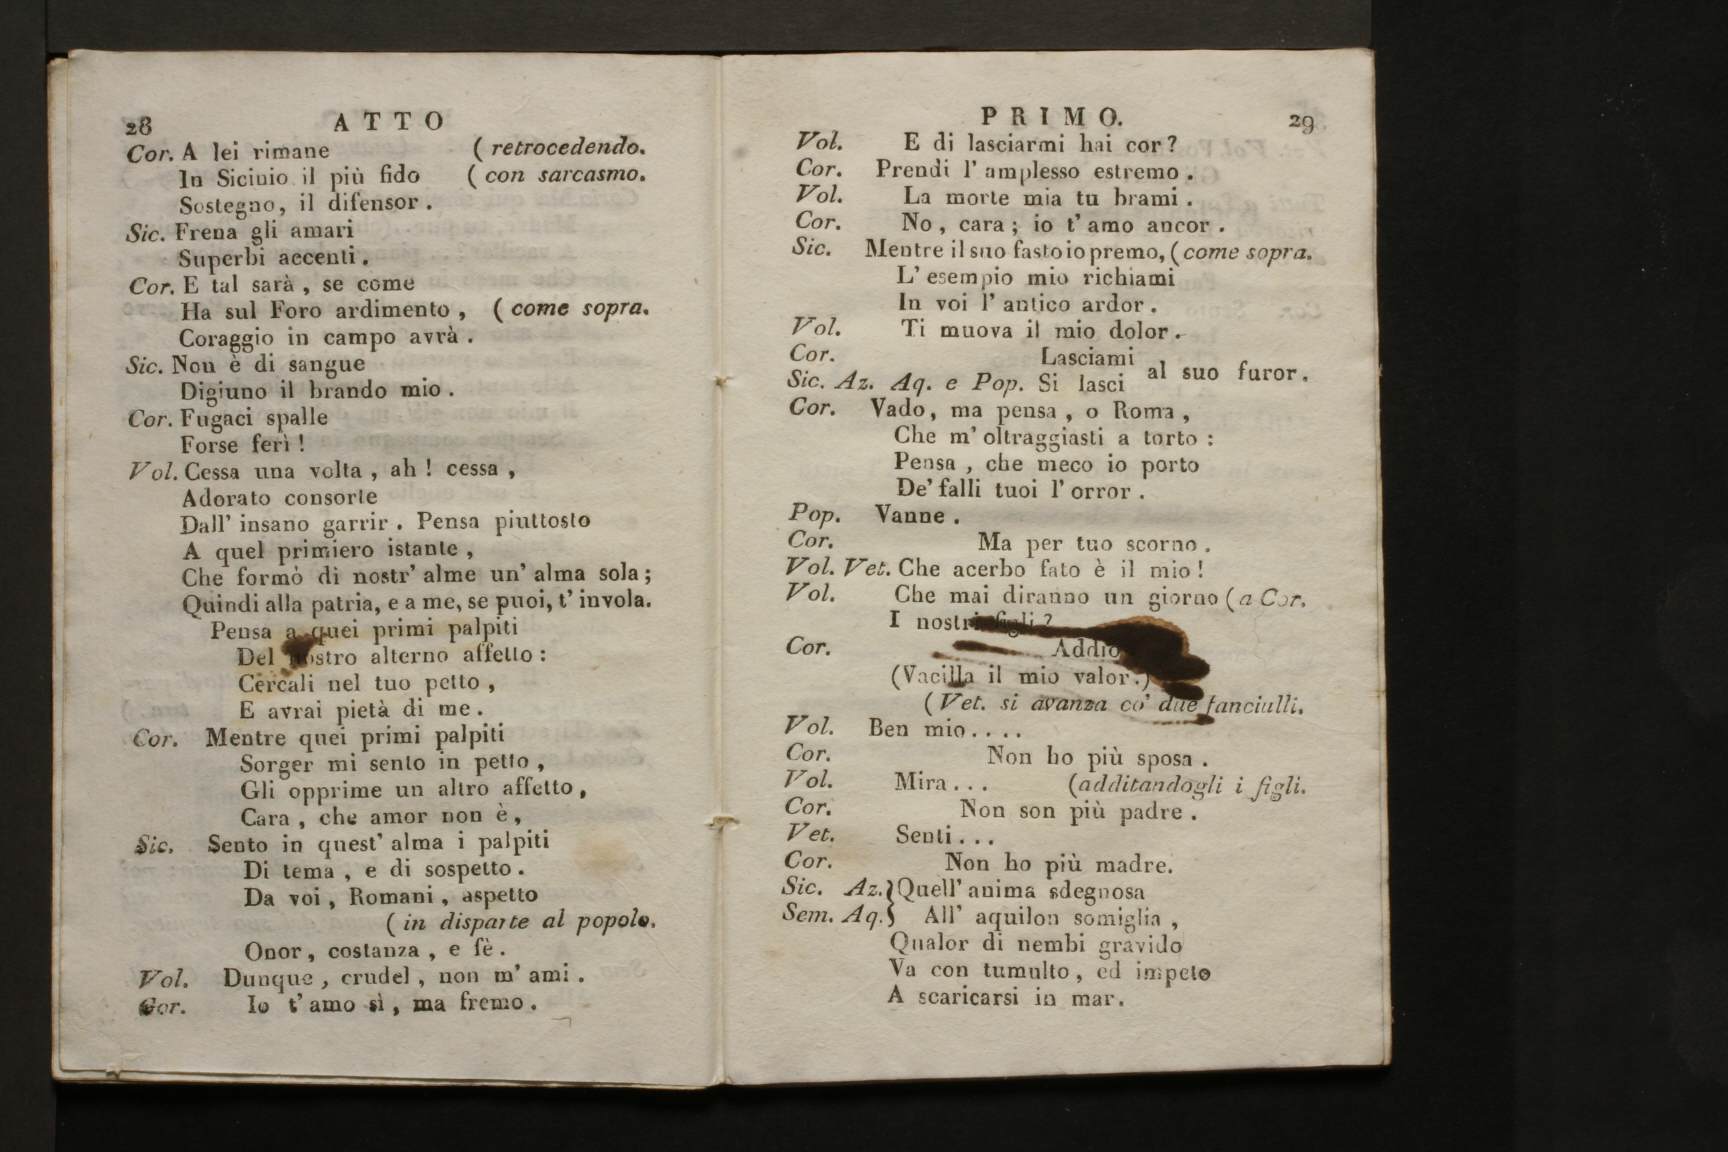 28 ATTO
Cor. A lei rimane ( retrocedendo.
In Sicinio il più fido ( con sarcasmo.
Sostegno, il difensor .
Sic. Frena gli amari
Superbi accenti .
Cor. E tal sarà , se come
Ha sul Foro ardimento , ( come sopra.
Coraggio in campo avrà .
Sic. Non è di sangue
Digiuno il brando mio .
Cor. Fugaci spalle
Forse ferì !
Vol. Cessa una volta , ah ! cessa ,
Adorato consorte
Dall' insano garrir . Pensa piuttosto
A quel primiero istante ,
Che formò di nostr' alme un' alma sola ;
Quindi alla patria, e a me, se puoi, t' invola.
Pensa a quei primi palpiti
Del nostro alterno affetto :
Cercali nel tuo petto ,
E avrai pietà di me .
Cor. Mentre quei primi palpiti
Sorger mi sento in petto ,
Gli opprime un altro affetto ,
Cara , che amor non è ,
Sic. Sento in quest' alma i palpiti
Di tema , e di sospetto .
Da voi , Romani , aspetto
( in disparte al popolo.
Onor , costanza , e fè .
Vol. Dunque , crudel , non m' ami .
Cor. Io t' amo sì , ma fremo .
PRIMO. 29
Vol. E di lasciarmi hai cor ?
Cor. Prendi l' amplesso estremo .
Vol. La morte mia tu brami .
Cor. No , cara ; io t' amo ancor .
Sic. Mentre il suo fasto io premo, ( come sopra.
L' esempio mio richiami
In voi l' antico ardor .
Vol. Ti muova il mio dolor .
Cor. Lasciami
Sic. Az. Aq. e Pop. Si lasci al suo furor .
Cor. Vado , ma pensa , o Roma ,
Che m' oltraggiasti a torto :
Pensa , che meco io porto
De' falli tuoi l' orror .
Pop. Vanne .
Cor. Ma per tuo scorno .
Vol. Vet. Che acerbo fato è il mio !
Vol. Che mai diranno un giorno ( a Cor.
I nostri figli ?
Cor. Addio
(Vacilla il mio valor.)
( Vet. si avanza co' due fanciulli.
Vol. Ben mio . . . .
Cor. Non ho più sposa .
Vol. Mira . . . (additandogli i figli.
Cor. Non son più padre .
Vet. Senti . . .
Cor. Non ho più madre.
Sic. Az. } Quell' anima sdegnosa
Sem. Aq. } All' aquilon somiglia ,
Qualor di nembi gravido
Va con tumulto , ed impeto
A scaricarsi in mar .